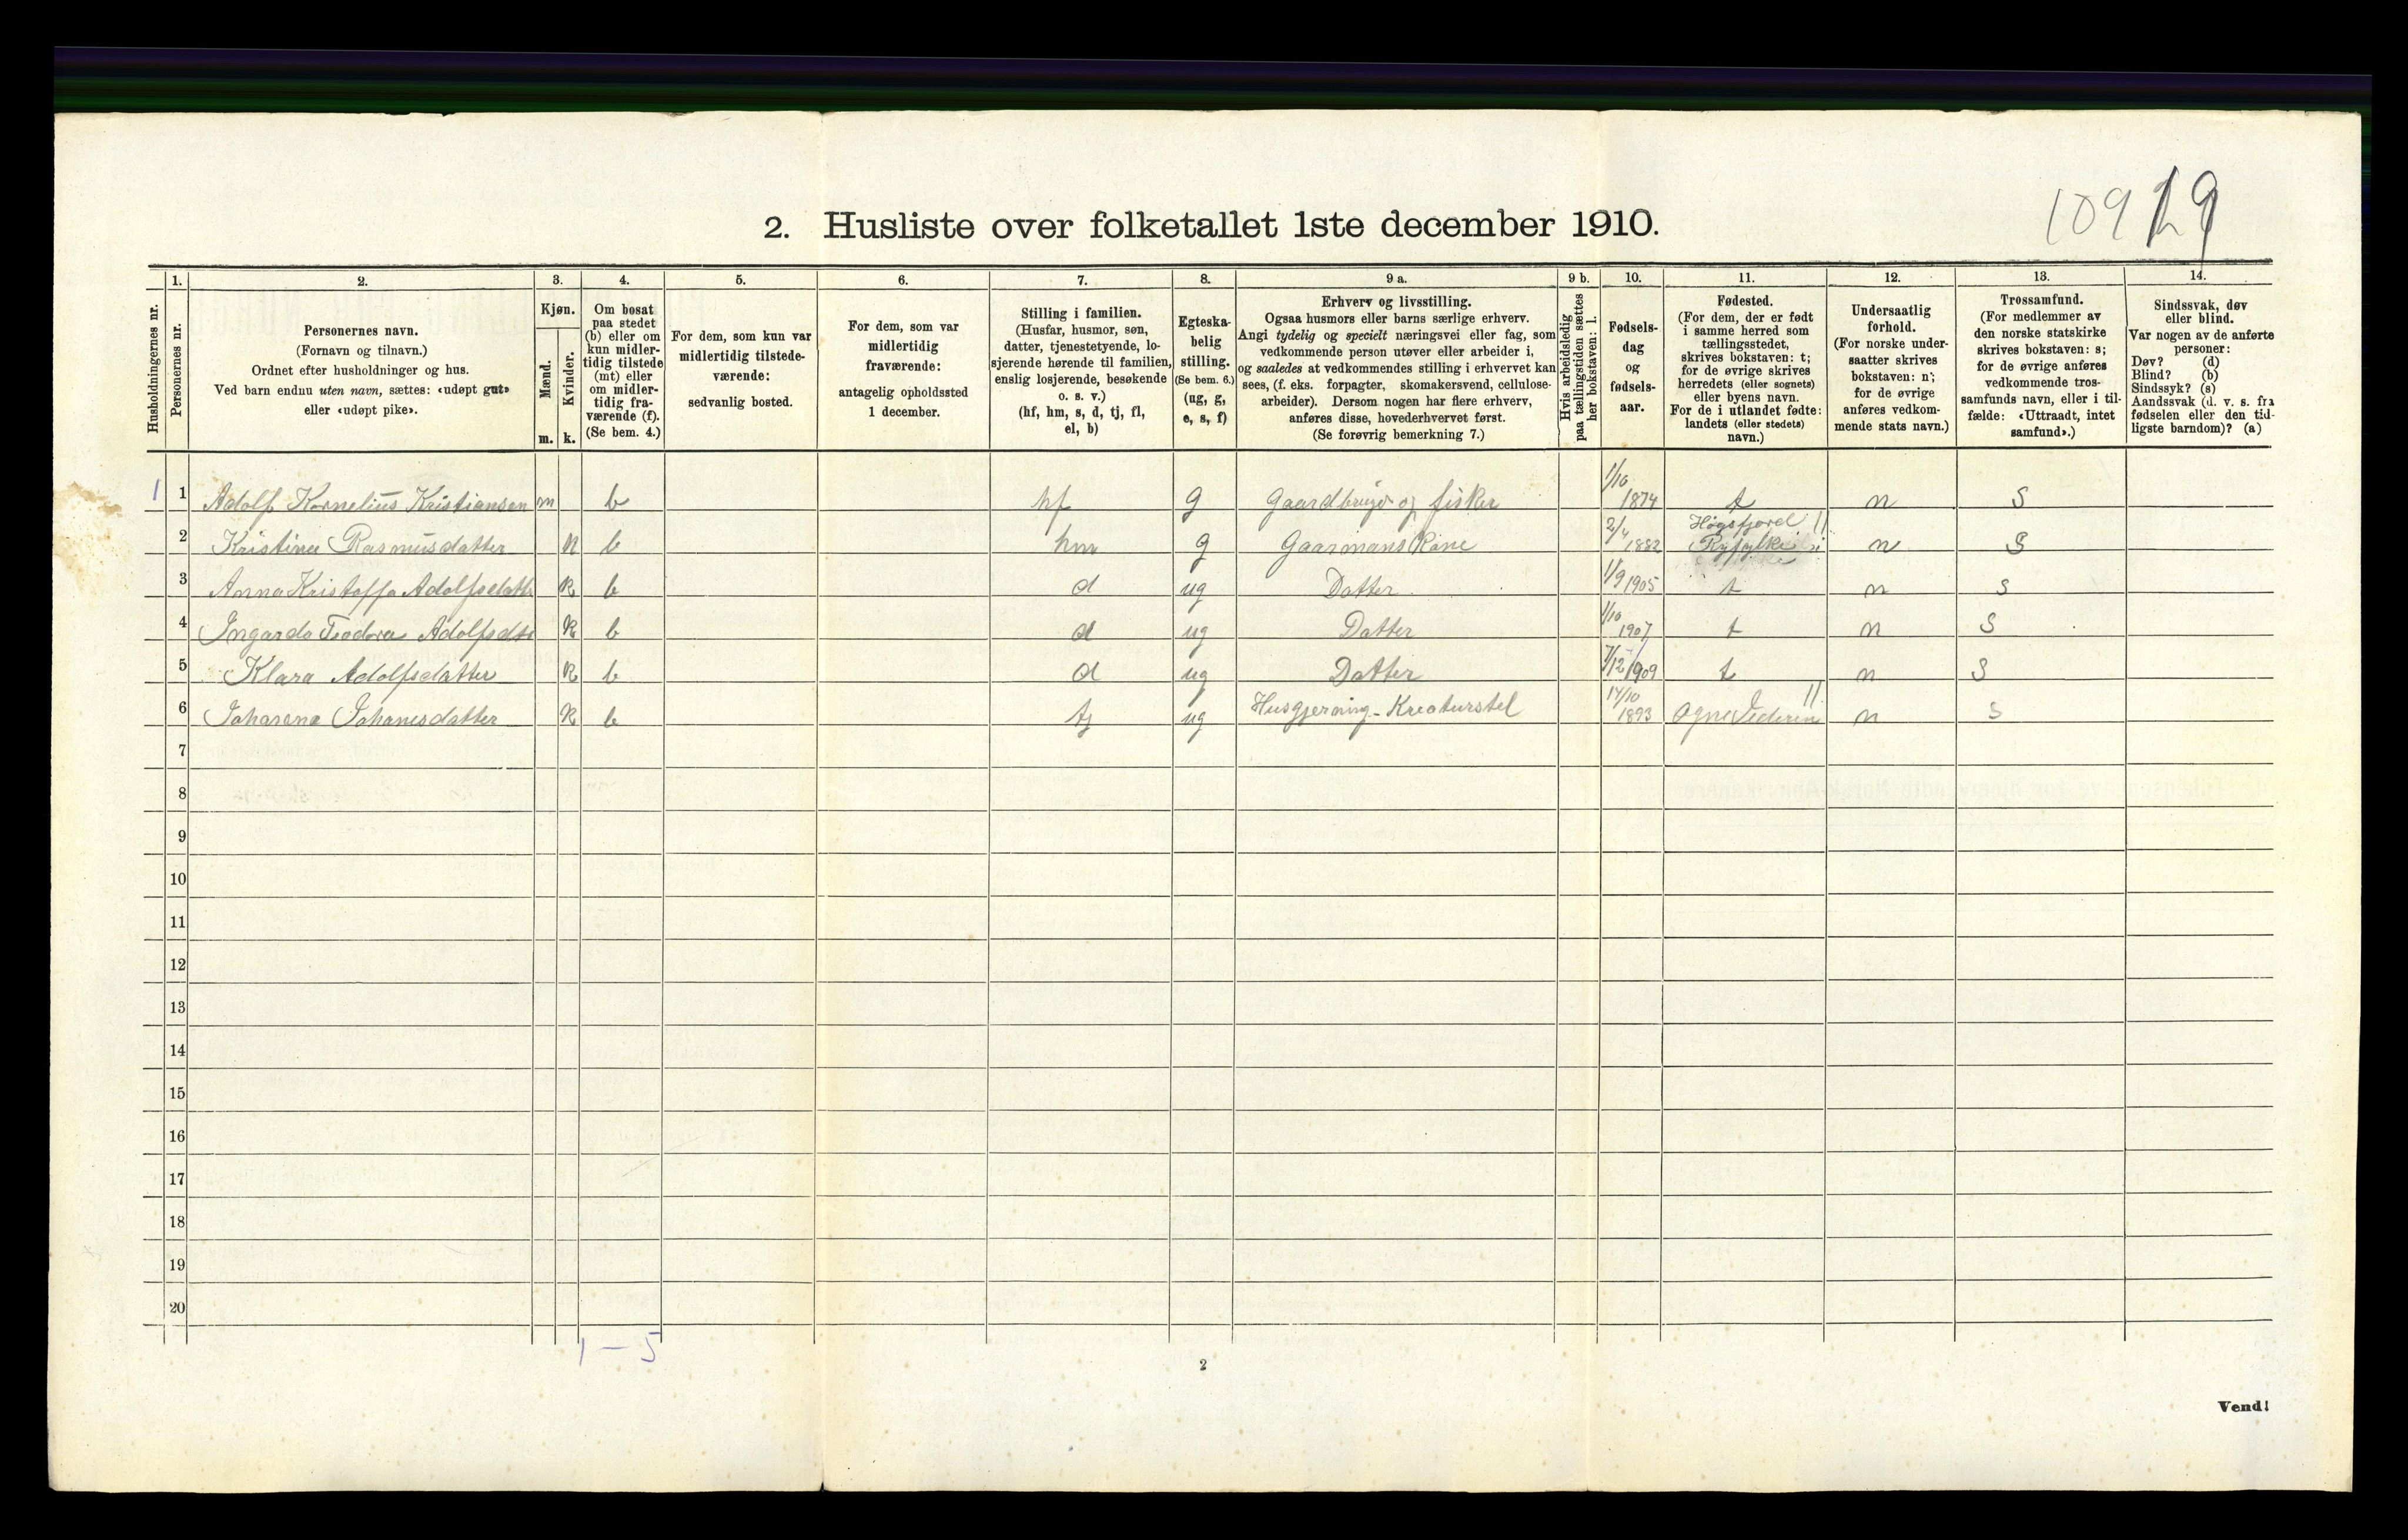 109 29
2. Husliste over folketallet 1ste december 1910.
Husholdningernes nr.
1.
Personernes nr.
2.
Personernes navn.
(Fornavn og tilnavn.)
Ordnet efter husholdninger og hus.
Ved barn endnu uten navn, sættes: «udøpt gut»
eller «udøpt pike».
3.
Kjøn.
Mænd.
Kvinder.
m. k.
4.
Om bosat
paa stedet
(b) eller om
kun midler-
tidig tilstede
(mt) eller
om midler-
tidig fra-
værende (f).
(Se bem. 4.)
5.
For dem, som kun var
midlertidig tilstede-
værende:
sedvanlig bosted.
6.
For dem, som var
midlertidig
fraværende:
antagelig opholdssted
1 december.
7.
Stilling i familien.
(Husfar, husmor, søn,
datter, tjenestetyende, lo-
sjerende hørende til familien,
enslig losjerende, besøkende
o. s. v.)
(hf, hm, s, d, tj, fl,
el, b)
8.
Egteska-
belig
stilling.
(Se bem. 6.)
(ug, g,
e, s, f)
9 a.
Erhverv og livsstilling.
Ogsaa husmors eller barns særlige erhverv.
Angi tydelig og specielt næringsvei eller fag, som
vedkommende person utøver eller arbeider i,
og saaledes at vedkommendes stilling i erhvervet kan
sees, (f. eks. forpagter, skomakersvend, cellulose-
arbeider). Dersom nogen har flere erhverv,
anføres disse, hovederhvervet først.
(Se forøvrig bemerkning 7.)
9 b.
Hvis arbeidsledig
paa tællingstiden sættes
her bokstaven: l.
10.
Fødsels-
dag
og
fødsels-
aar.
11.
Fødested.
(For dem, der er født
i samme herred som
tællingsstedet,
skrives bokstaven: t;
for de øvrige skrives
herredets (eller sognets)
eller byens navn.
For de i utlandet fødte:
landets (eller stedets)
navn.)
12.
Undersaatlig
forhold.
(For norske under-
saatter skrives
bokstaven: n;
for de øvrige
anføres vedkom-
mende stats navn.)
13.
Trossamfund.
(For medlemmer av
den norske statskirke
skrives bokstaven: s;
for de øvrige anføres
vedkommende tros-
samfunds navn, eller i til-
fælde: «Uttraadt, intet
samfund».)
14.
Sindssvak, døv
eller blind.
Var nogen av de anførte
personer:
Døv? (d)
Blind? (b)
Sindssyk? (s)
Aandssvak (d. v. s. fra
fødselen eller den tid-
ligste barndom)? (a)
1 1 Adolf Kornelius Kristiansen m b hf g Gaardbruger og fisker 1/10 1874 t n S
2 Kristina Rasmusdatter k b hm g Gaarmans Kone 2/4 1882 Høgsfjord Ryfylke n S
3 Anna Kristoffa Adolfsdatt k b d ug Datter 1/9 1905 t n S
4 Ingarda Teodora Adolfsdtr k b d ug Datter 1/10 1907 t n S
5 Klara Adolfsdatter k b d ug Datter 7/12 1909 t n S
6 Joharena Johanesdatter k b tj ug Husgjerning - Kreaturstel 14/10 1893 Ogne Jederen n S
7
8
9
10
11
12
13
14
15
16
17
18
19
20
1 – 5
2
Vend!